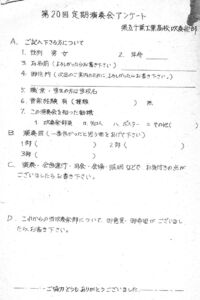 第20回定期演奏会アンケート
県立千葉工業高校吹奏楽部
A. ご記入下さる方について
1. 性別 男 女 2. 年令
3. お名前(よろしかったらお書き下さい)
4. 御住所(次回のご案内のためによろしかったらお書き下さい)
5. 職業・学生の方は学校名
6. 音楽経験 有(種類 )無
7. この演奏会を知った動機
1. 吹奏楽部員 ロ. チラシ ハ. ポスター ニ. その他( )
B 演奏曲(一番良かったと思う曲をあげて下さい)
1部( ) 2部( )
3部( )
C. 演奏・会場・司会・照明などで お気付きの点が
ございましたらお書き下さい。
D. これからの吹奏楽部について 御意見・御希望がございまし
たら、お書き下さい。
ご協力どうも ありがとうございました